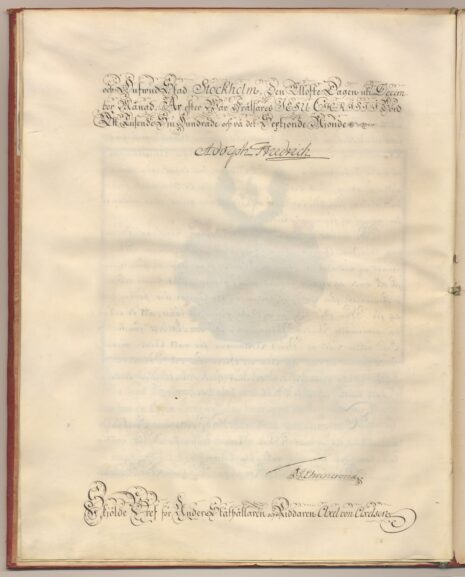 och Hufwud Stad Stockholm, den Ellofte Dagen uti Decem-
ber Månad, År efter Wår Frälsares JESU CHRISTI Börd
Ett Tusende Siu Hundrade och på det Sextionde
Adolph Friedrich
Skölde Bref för Under Ståthållaren och Riddaren Axel von Axelson